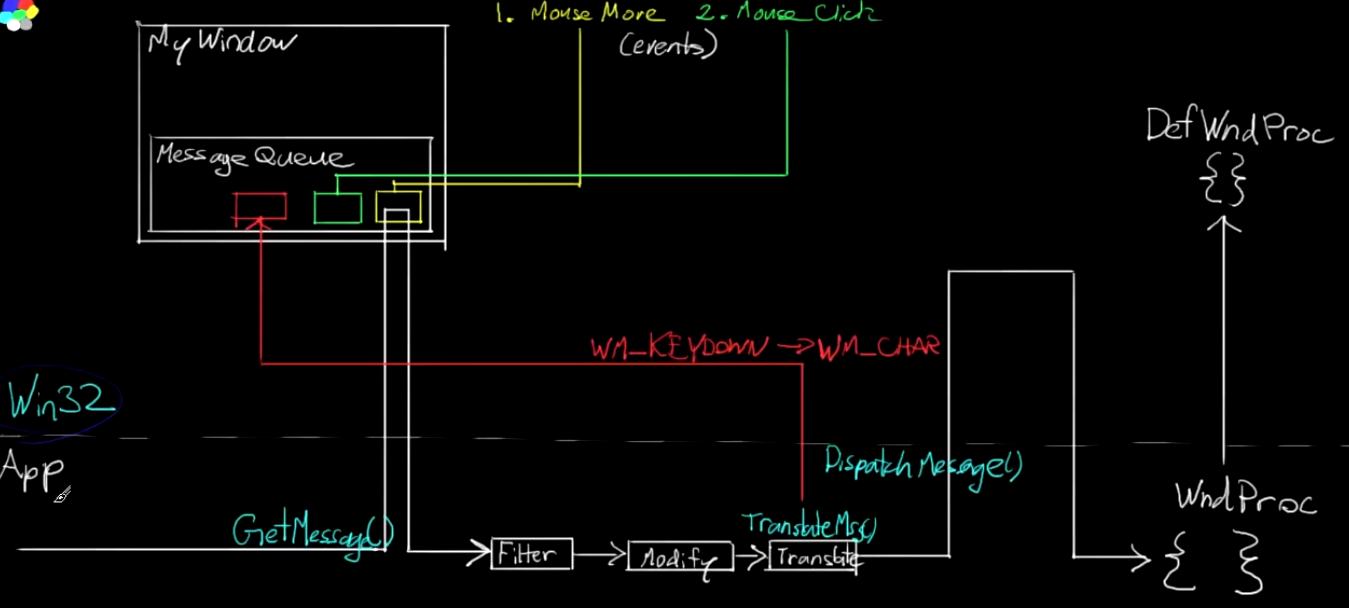 1. Mouse Move 2. Mouse Click
(events)
My Window
Message Queue
DefWndProc
{}
WM_KEYDOWN → WM_CHAR
Win32
App
DispatchMessage()
WndProc
{ }
GetMessage()
TranslateMsg()
Filter → Modify → Translate